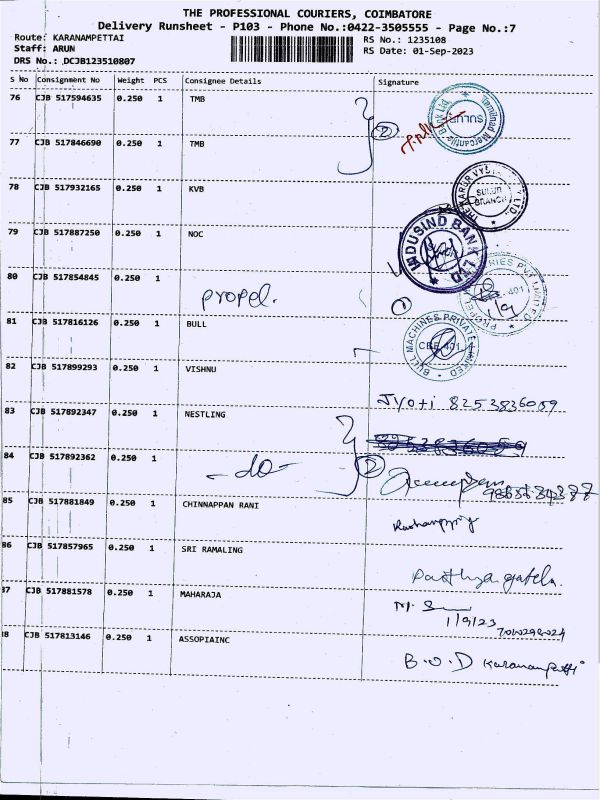 THE PROFESSIONAL COURIERS, COIMBATORE
Delivery Runsheet - P103 - Phone No.:0422-3505555 - Page No.:7
Route: KARANAMPETTAI
RS No.: 1235108
Staff: ARUN
RS Date: 01-Sep-2023
DRS No.: DCJB123510807
S No Consignment No Weight PCS Consignee Details Signature
76 CJB 517594635 0.250 1 TMB
Tamilnad Mercantile Bank Ltd.
SULUR
2
77 CJB 517846690 0.250 1 TMB
78 CJB 517932165 0.250 1 KVB
THE KARUR VYSYA BANK LTD.
SULUR
BRANCH
79 CJB 517887250 0.250 1 NOC
INDUSIND BANK LTD
80 CJB 517854845 0.250 1 propel.
PROPEL INDUSTRIES PVT LIMITED
401
1/9
1
81 CJB 517816126 0.250 1 BULL
BULL MACHINES PRIVATE LIMITED
CBE-401
82 CJB 517899293 0.250 1 VISHNU
Jyoti 8253836059
83 CJB 517892347 0.250 1 NESTLING
84 CJB 517892362 0.250 1 -do-
2
85 CJB 517881849 0.250 1 CHINNAPPAN RANI
86 CJB 517857965 0.250 1 SRI RAMALING
87 CJB 517881578 0.250 1 MAHARAJA
1/9/23
88 CJB 517813146 0.250 1 ASSOPIAINC
B.O.D Karanampetti